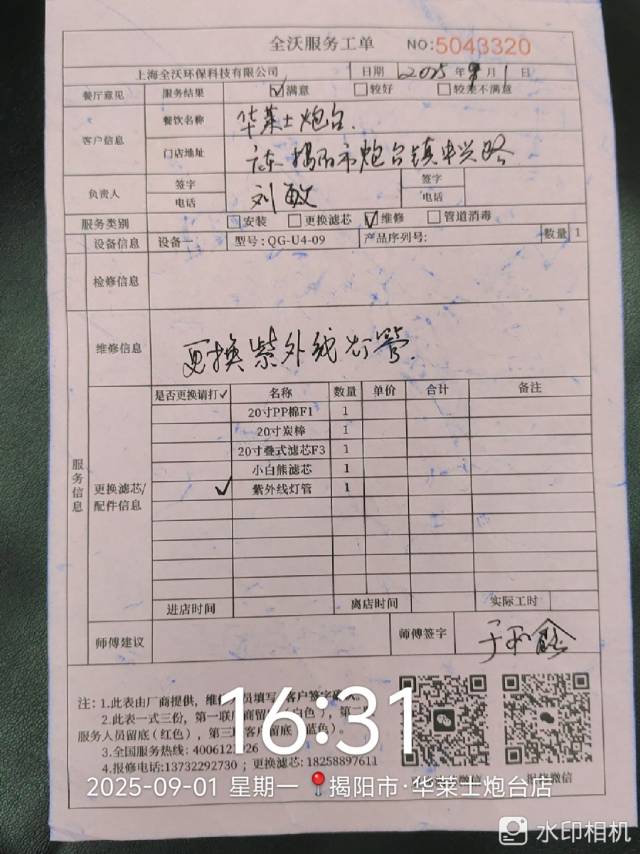 全沃服务工单 NO:5043320
上海全沃环保科技有限公司 日期 2025年9月1日
餐厅意见 服务结果 ☑满意 □较好 □较差不满意
客户信息 餐饮名称 华莱士炮台.
门店地址 广东揭阳市炮台镇中兴路
负责人 签字 刘敏 签字
电话 电话
服务类别 □安装 □更换滤芯 ☑维修 □管道消毒
设备信息 设备一 型号:QG-U4-09 产品序列号: 数量 1
检修信息
维修信息 更换紫外线灯管.
服务信息
更换滤芯/配件信息
是否更换请打✓ 名称 数量 单价 合计 备注
20寸PP棉F1 1
20寸炭棒 1
20寸叠式滤芯F3 1
小白熊滤芯 1
✓ 紫外线灯管 1
进店时间 离店时间 实际工时
师傅建议 师傅签字
注: 1.此表由厂商提供, 客户签字
2.此表一式三份, 第一联厂商留
服务人员留底(红色), 第三联客户留底(蓝色)。
3.全国服务热线: 4006127126
4.报修电话:13732292730 ; 更换滤芯: 18258897611
微信
16:31
2025-09-01 星期一 揭阳市·华莱士炮台店
水印相机